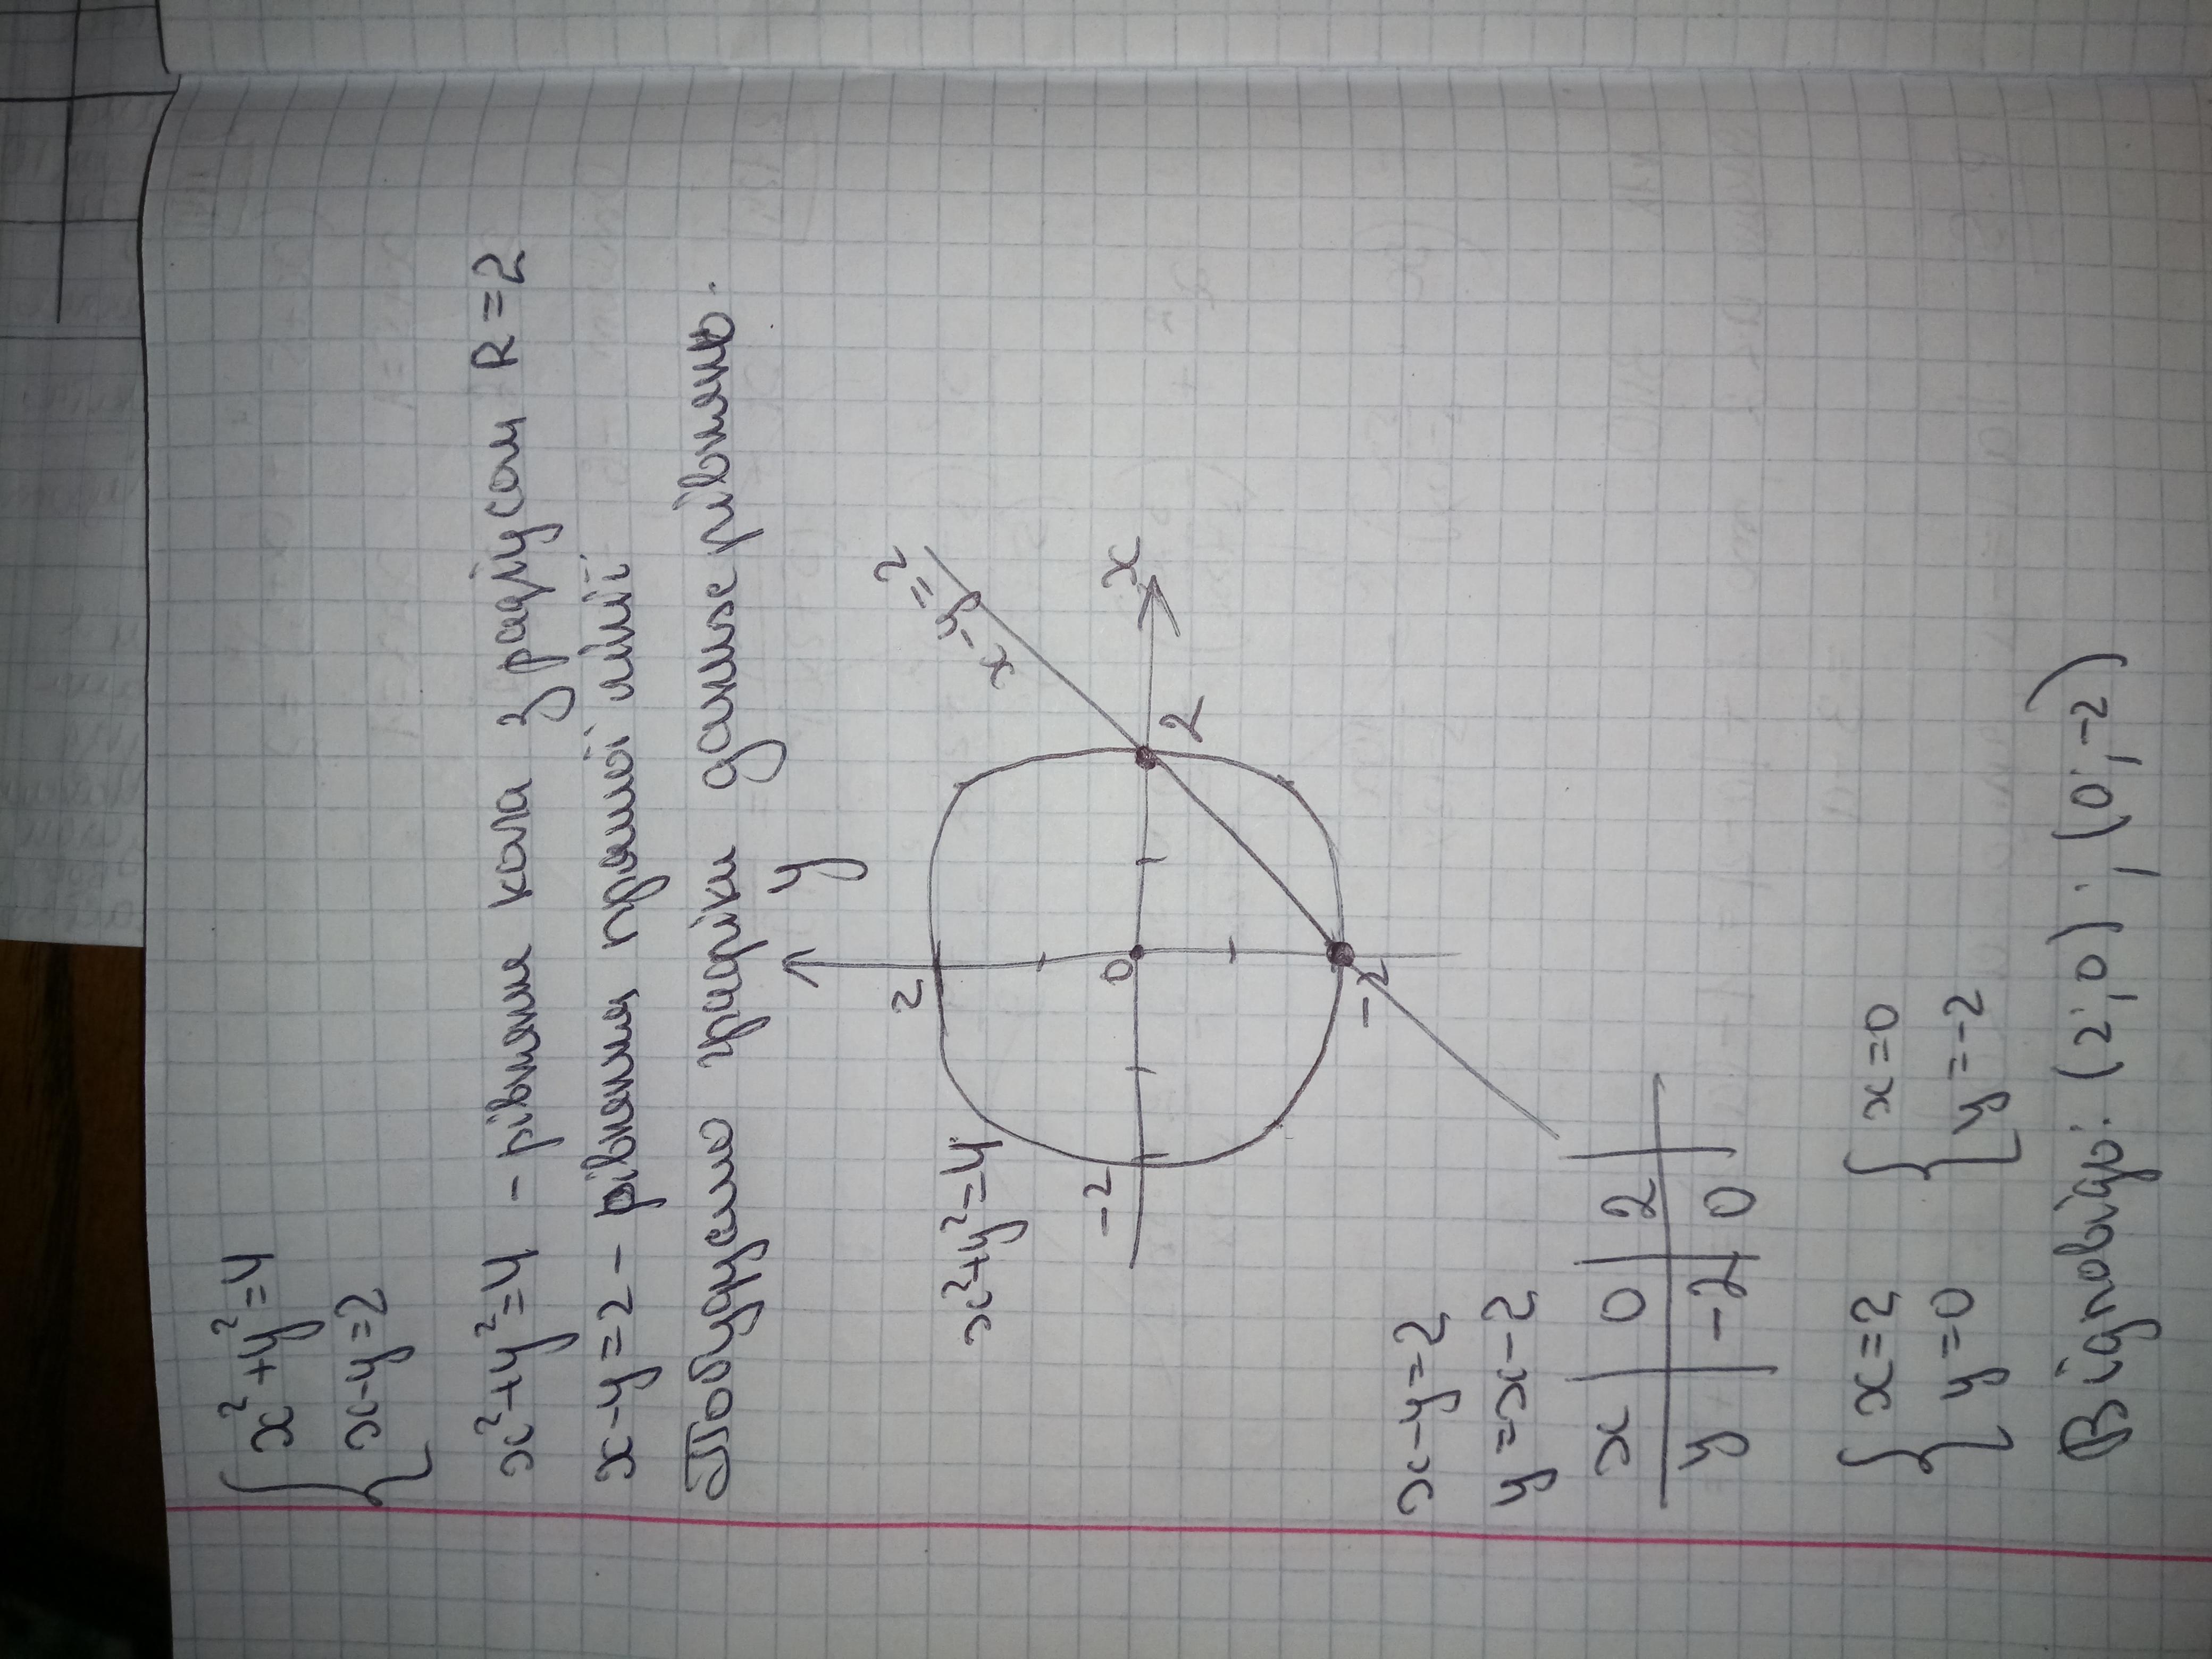 { x²+y²=4
x-y=2
x²+y²=4 - рівняння кола з радіусом R=2
x-y=2 - рівняння прямої лінії
Побудуємо графіки даних рівнянь.
y
2
x-y=2
x²+y²=4
-2
0
2
x
-2
x-y=2
y=x-2
x | 0 | 2
y | -2 | 0
{ x=2 { x=0
y=0 y=-2
Відповідь: (2;0); (0;-2)